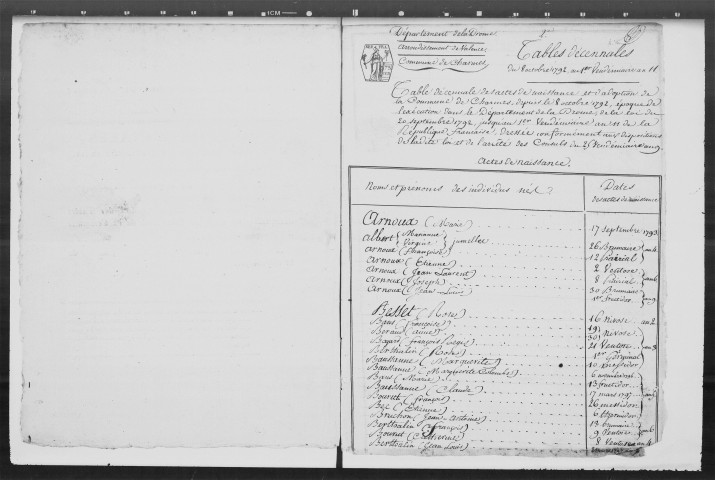 Département de la Drome
arrondissement de Valence
Commune de Charmes
Tables décennales
du 8 octobre 1792 au 1er Vendemiaire an 11
Table décennale des actes de naissance et d'adoption de
la Commune de Charmes, depuis le 8 octobre 1792, époque de
l'exécution dans le Département de la Drome, de la loi du
20 septembre 1792, jusqu'au 1er Vendemiaire an 11 de la
République française, dressée conformément aux dispositions
de ladite loi et de l'arrêté des Consuls du 25 Vendemiaire an 9
actes de naissance.
Noms et prénoms des individus nés
Dates
des actes de naissance
Arnoux (Marie) 17 septembre 1793
albert (Marianne
jumelles 26 Brumaire an 4
arnoux (françoise) 12 prairial
arnoux (Etienne) 2 Ventose
arnoux (Jean Laurent) 8 prairial an 6
arnoux (Joseph) 30 Brumaire
arnoux (Jean Louis) 1er fructidor an 9
Besset (Rose) 16 nivose an 2
(françoise) 19
(anne) 30 nivose
(françois Regis) 21 Ventose an 3
Berthalin (Rose) 1er Germinal
Baussanne (Marguerite) 10 messidor
Baussanne (Marguerite Colombe)
(Marie) 13 fructidor
Baussanne (Claude) 17 mars 1797
Bourith (françois) 26 messidor
(Etienne)
Bruchon (Jean antoine) 13 brumaire
Berthalin (françois) 9 Ventose an 6
Bouvet (Catherine) 8
Berthalin (Jean Louis)